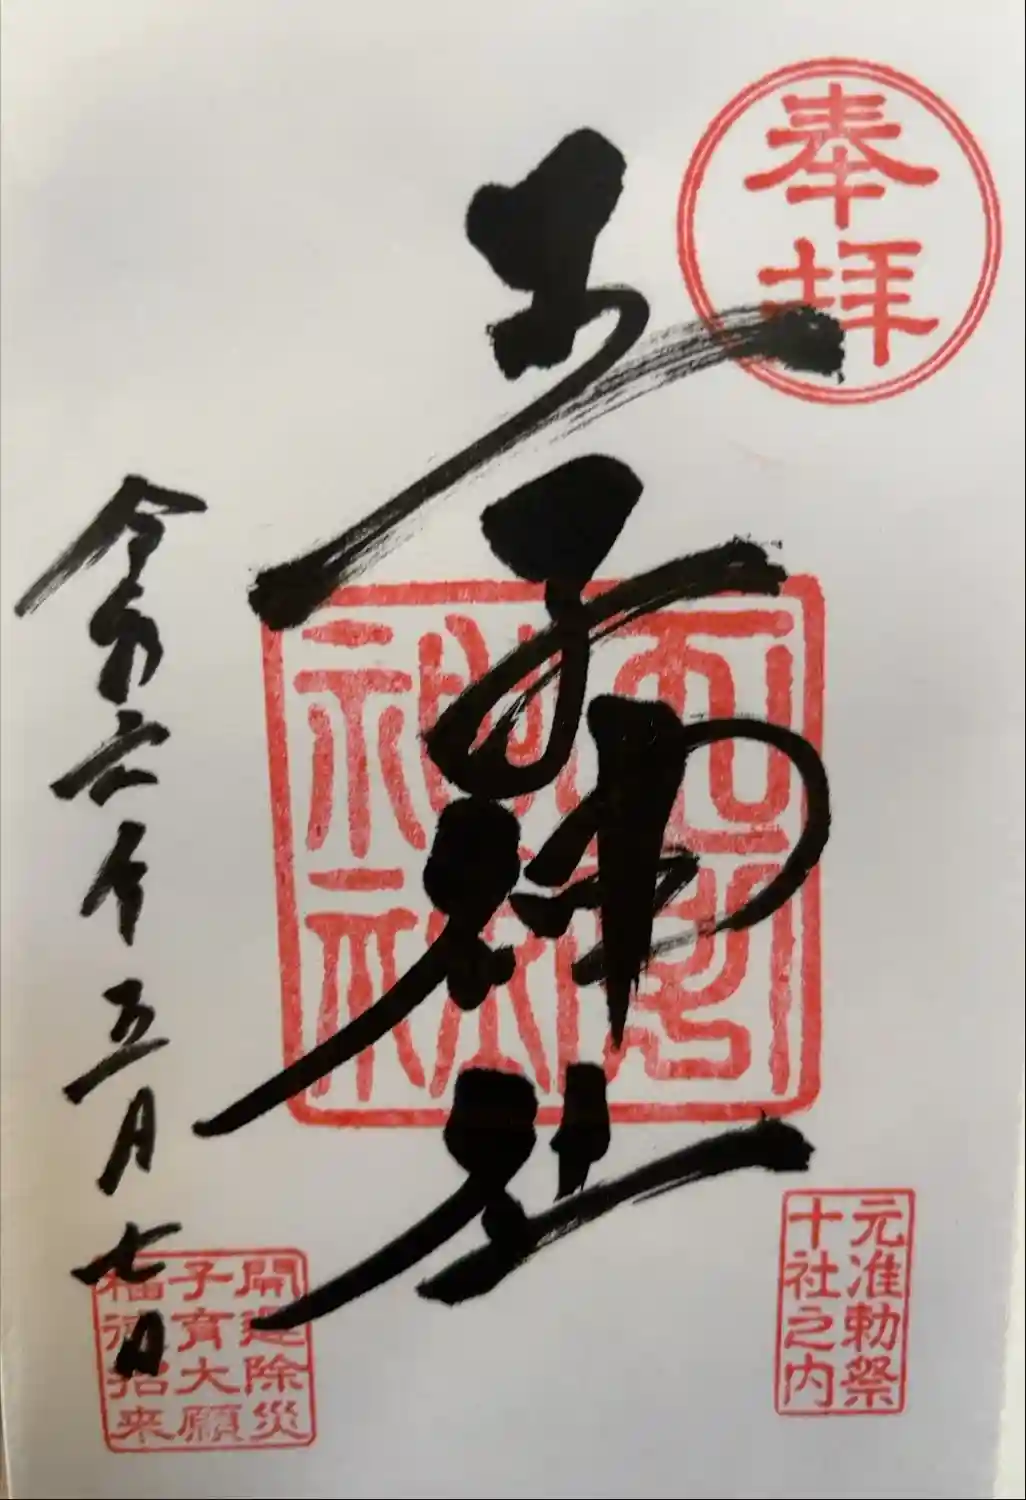 奉拝
王子神社
元准勅祭
十社之内
令和六年五月七日
開運除災
子育大願
福徳招来